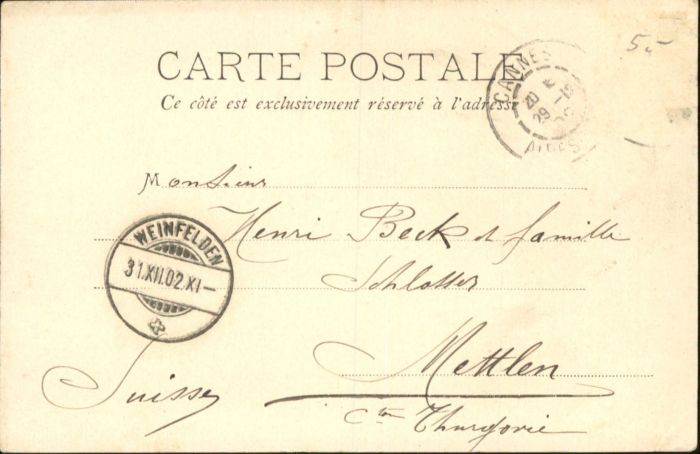 5.-
CARTE POSTALE
Ce côté est exclusivement réservé à l'adresse
CANNES
20
29
ALPES
Monsieur
Henri Beck et famille
Schlosser
WEINFELDEN
31.XII.02.XI-
Mettlen
Suisse
Cton Thurgovie